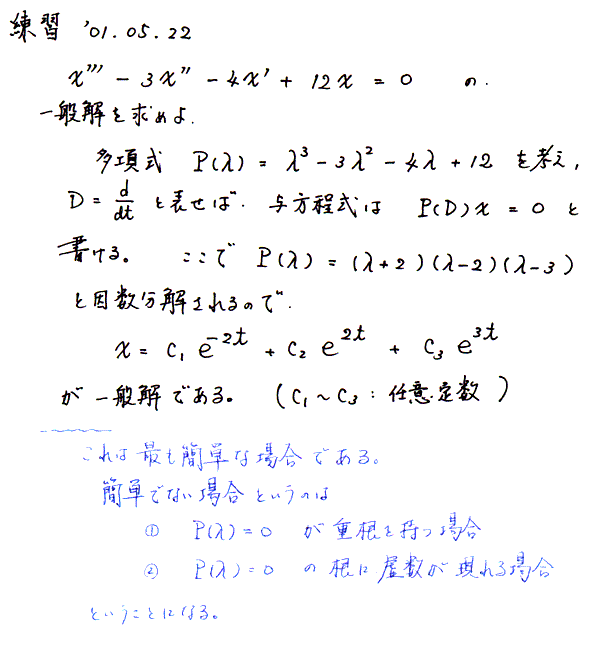 練習 '01.05.22
x''' - 3x'' - 4x' + 12x = 0 の
一般解を求めよ.
多項式 P(λ) = λ³-3λ²-4λ+12 を考え,
D = d/dt と表せば. 与方程式は P(D)x = 0 と
書ける。 ここで P(λ) = (λ+2)(λ-2)(λ-3)
と因数分解されるので.
x = C₁ e^{-2t} + C₂ e^{2t} + C₃ e^{3t}
が一般解である。 (C₁~C₃ : 任意定数)
これは最も簡単な場合である。
簡単でない場合というのは
① P(λ)=0 が重根を持つ場合
② P(λ)=0 の根に虚数が現れる場合
ということになる。